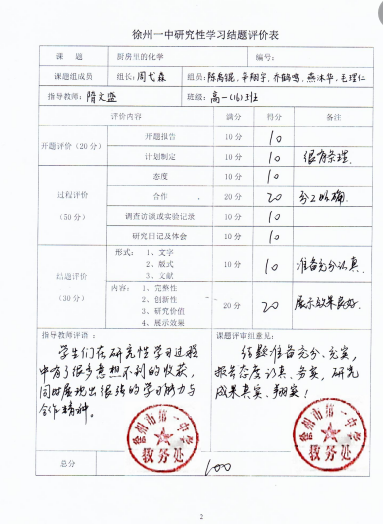 徐州一中研究性学习结题评价表
课 题 厨房里的化学 编号:
课题组成员 组长:周弋森 组员:
指导教师: 隋文盛 班级: 高一(16)班
评价内容 满分 得分 备注
开题评价(20分) 开题报告 10分 10
计划制定 10分 10 很有条理
过程评价(50分) 态度 10分 10
合作 20分 20 分工明确
调查访谈或实验记录 10分 10
研究日记及体会 10分 10
结题评价(30分) 形式: 1、文字
2、版式
3、文献
10分 10 准备充分认真
内容: 1、完整性
2、创新性
3、研究价值
4、展示效果
20分 20 展示效果良好
指导教师评语:
学生们在研究性学习过程
中有了很多意想不到的收获,
同时展现出很强的学习能力与
合作精神。
课题评审组意见:
结题准备充分、充实,
报告态度认真、务实,研究
成果真实、翔实!
徐州市第一中学
教务处
徐州市第一中学
教务处
总分 100
2